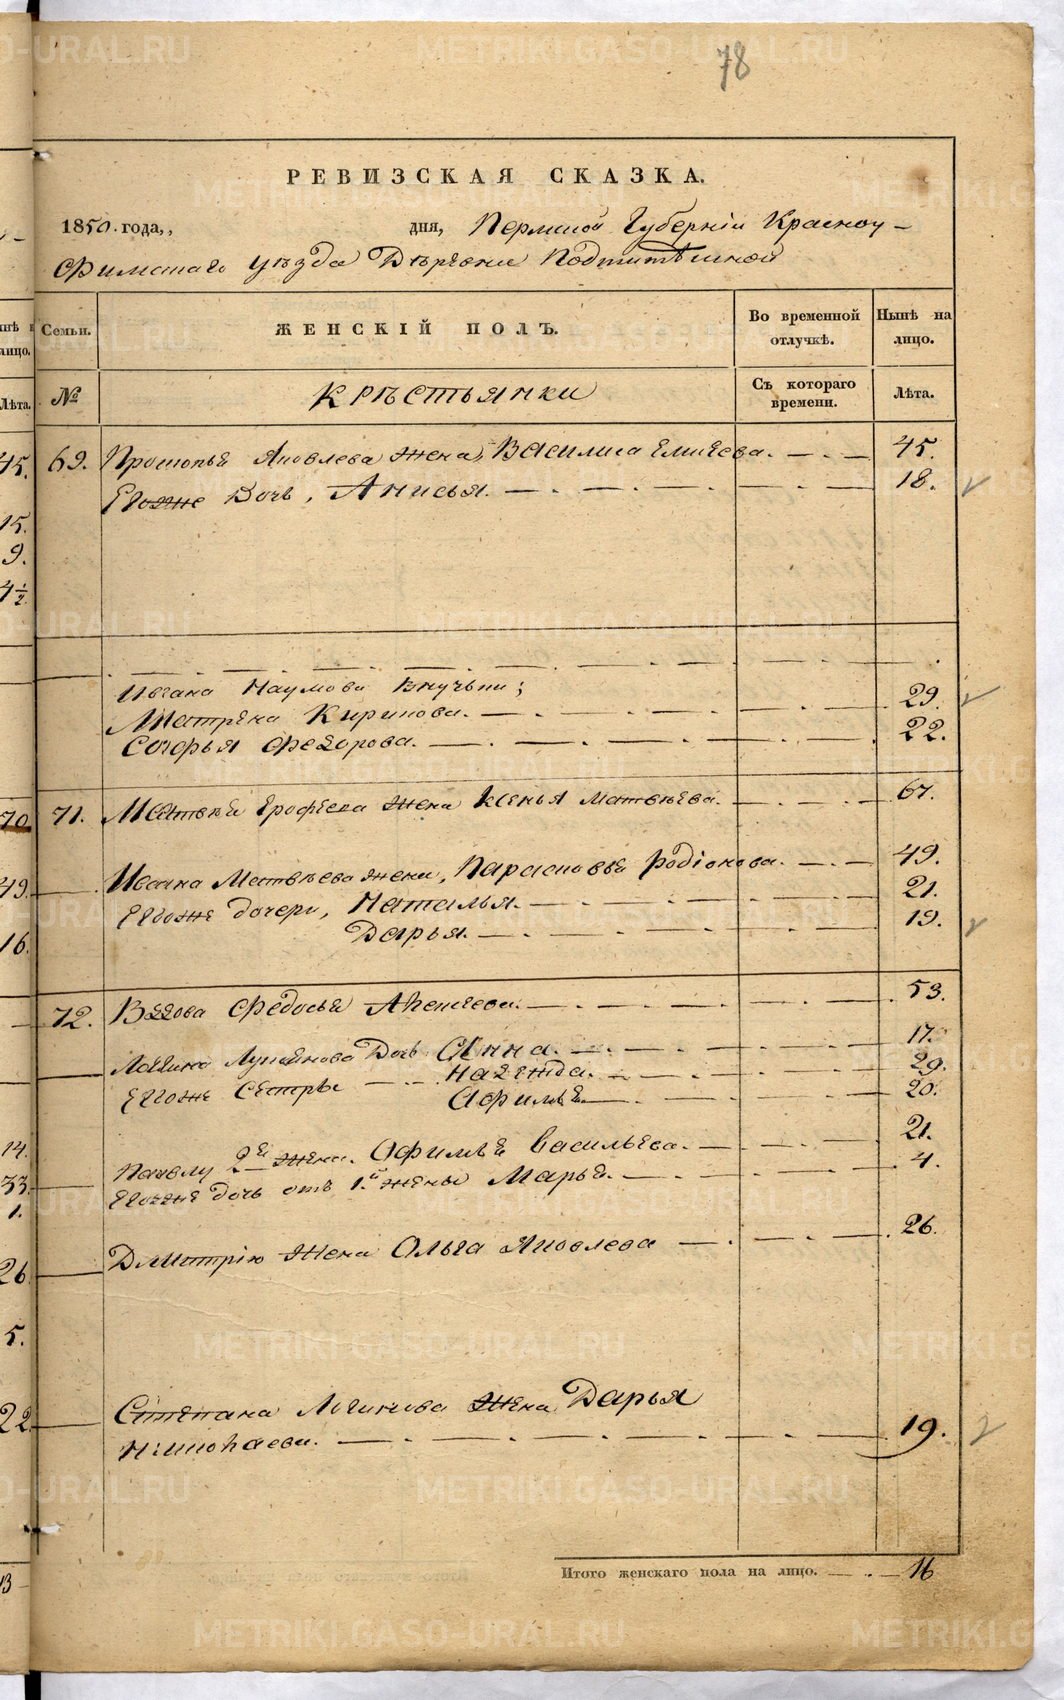 78
РЕВИЗСКАЯ СКАЗКА.
1850. года,, дня, Пермской Губерніи Красноу-
фимскаго уѣзда Деревни
Семьи. ЖЕНСКІЙ ПОЛЪ. Во временной отлучкѣ. Нынѣ на лицо.
№ Крестьянки Съ котораго времени. Лѣта.
69. Прокопья Яковлева жена, Василиса 45.
Егоже дочь, Анисья. 18.
Ивана Наумова внучьки;
Матрена Кирилова. 29.
Софья Федорова. 22.
71. Матвея Ерофеева жена Ксенья Матвѣева. 67.
Ивана Матвѣева жена, Парасковья Родіонова. 49.
Егоже дочери, Наталья. 21.
Дарья. 19.
72. Вдова Федосья 53.
Логина Дочь Анна. 17.
Егоже Сестры Надежда. 29.
Афимья 20.
Павлу 2я жена. Офимья Васильева. 21.
Егоже дочь отъ 1й жены Марья. 4.
Дмитрію жена Ольга Яковлева 26.
Степана Логинова жена Дарья
Николаева. 19.
Итого женскаго пола на лицо. 16
45.
15.
9.
4½
70
49.
16.
14.
33.
1.
26
5.
22
13
METRIKI.GASO-URAL.RU